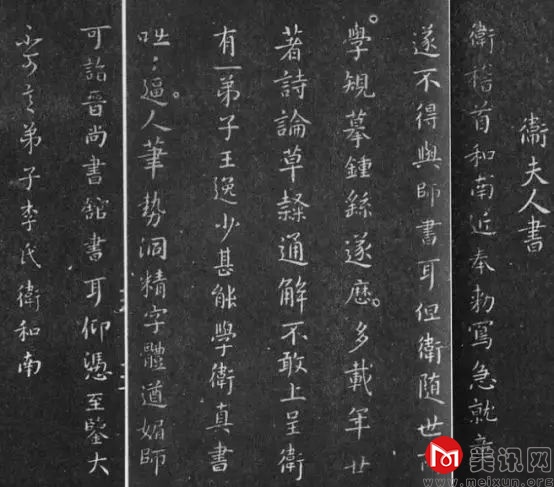 衛夫人書
衛稽首和南近奉勅寫急就章
遂不得與師書耳但衛隨世
學規摹鍾繇遂歷多載年廿
著詩論草隸通解不敢上呈衛
有一弟子王逸少甚能學衛真書
咄〻逼人筆勢洞精字體遒媚師
可詣晉尚書館書耳仰憑至鑒大
不可言弟子李氏衛和南
美讯网